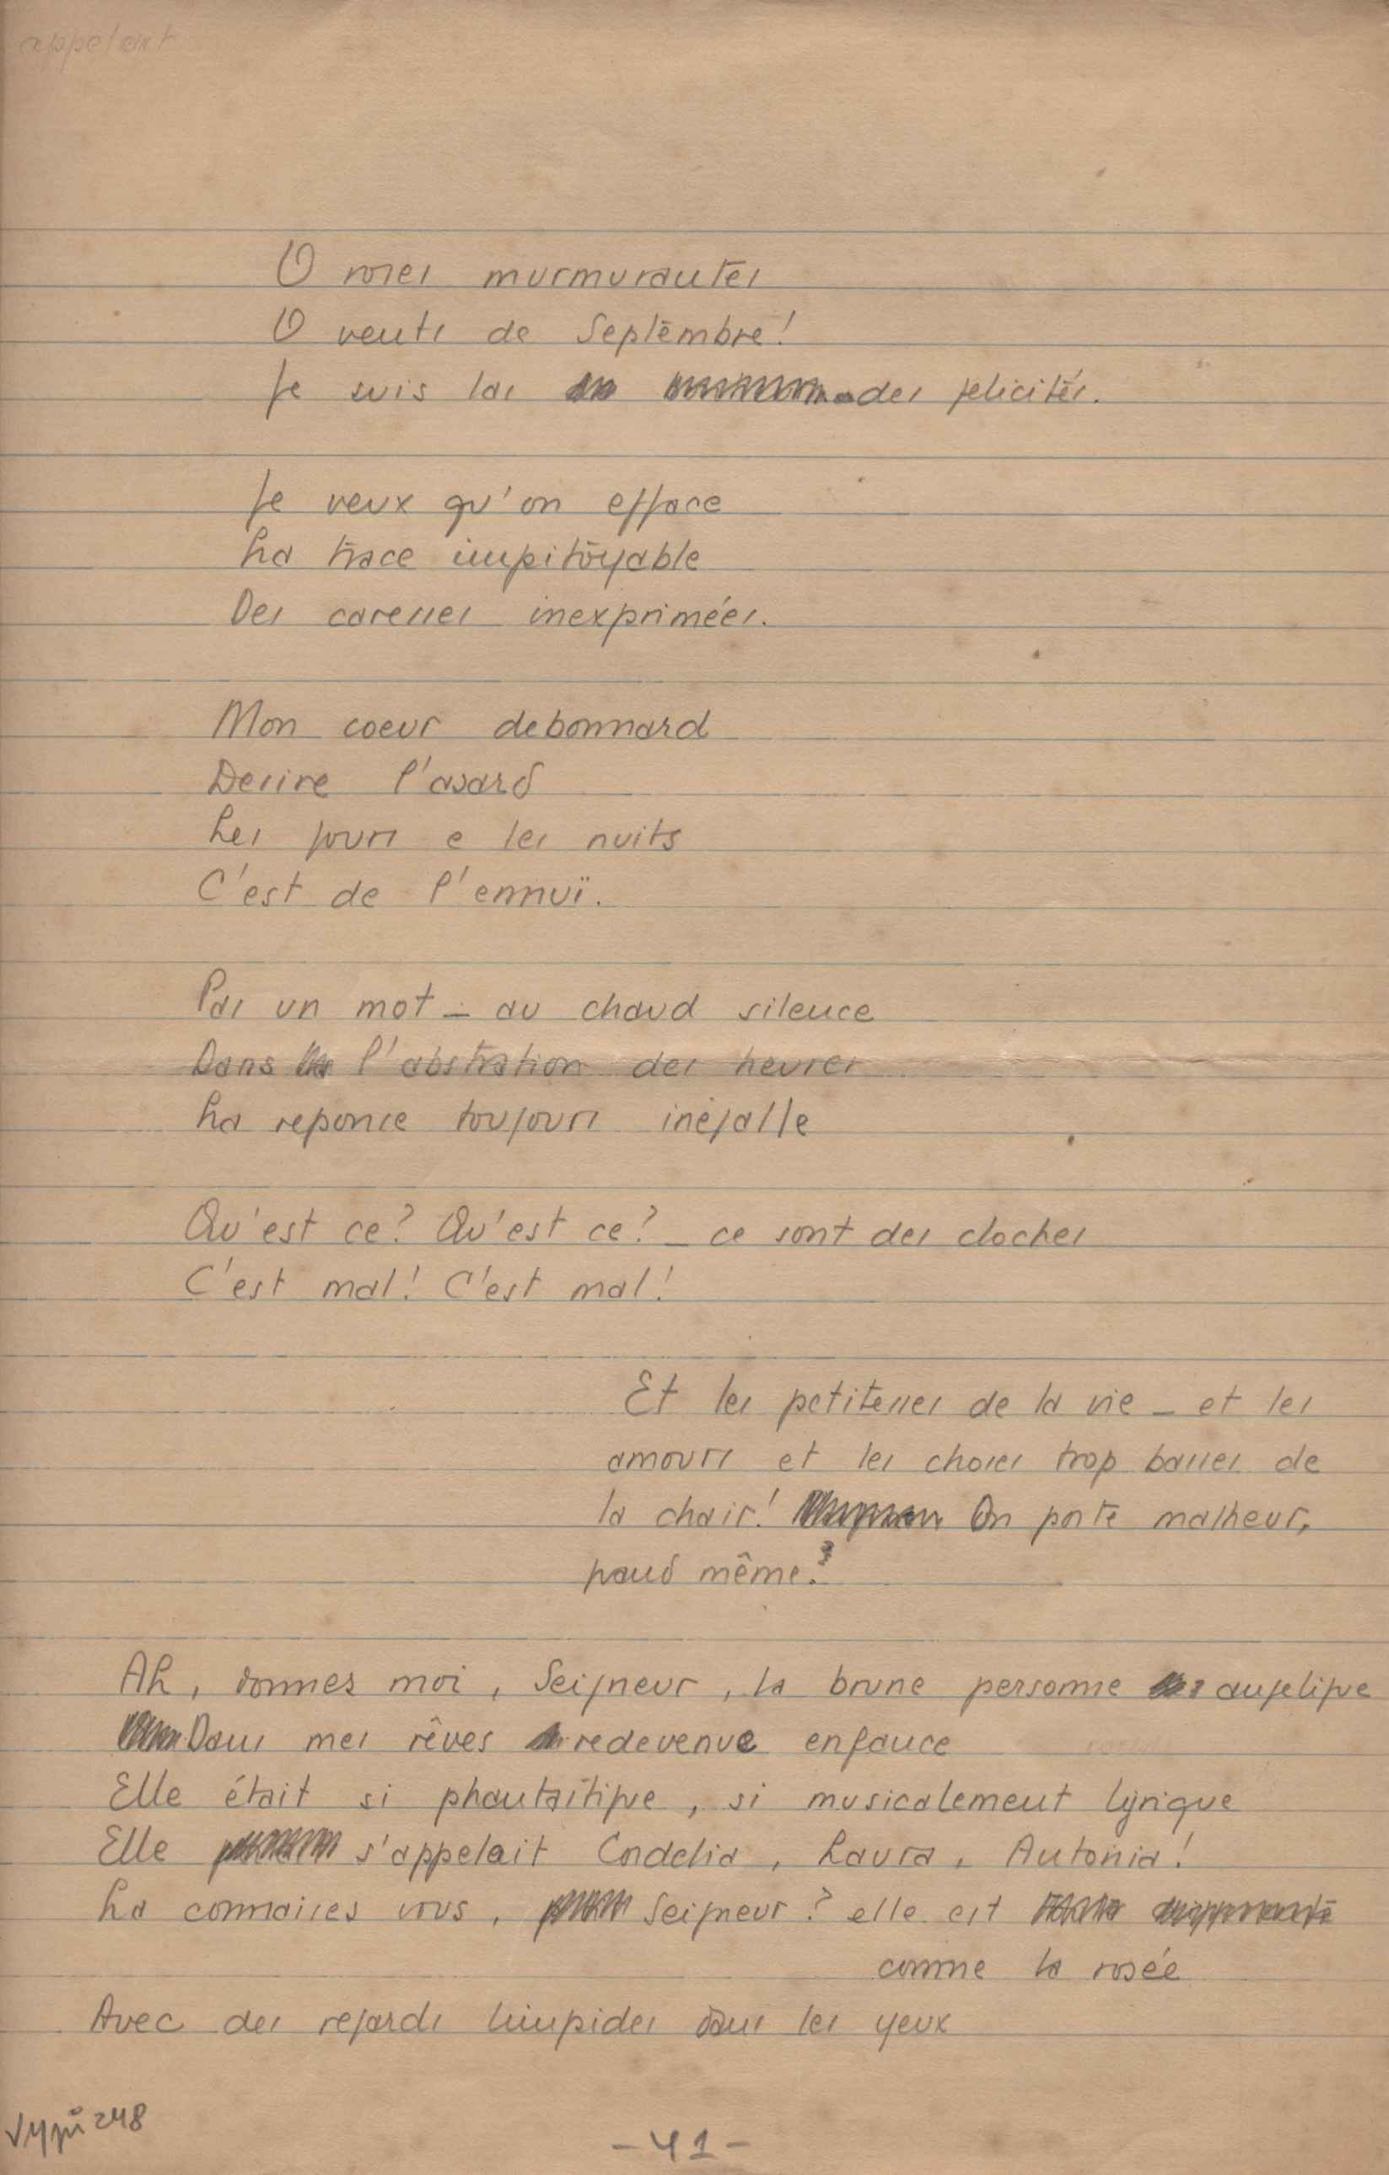 appelait
O roses murmurantes
O vents de Septembre!
Je suis las des felicités.
Je veux qu'on efface
La trace impitoyable
Des caresses inexprimées.
Mon coeur debonnard
Desire l'asard
Les jours e les nuits
C'est de l'ennuï.
Pas un mot _ au chaud silence
Dans l'abstration des heures
La reponse toujours inégalle
Qu'est ce? Qu'est ce? _ ce sont des cloches
C'est mal! C'est mal!
Et les petitesses de la vie _ et les
amours et les choses trop basses de
la chair! On porte malheur,
quand même?
Ah, donnes moi, Seigneur, la brune personne angelique
Dans mes rêves redevenue enfance
Elle était si phantastique, si musicalement lyrique
Elle s'appelait Cordelia, Laura, Antonia!
La connaisses vous, Seigneur? elle est
comme la rosée
Avec des regards limpides dans les yeux
248
- 41 -